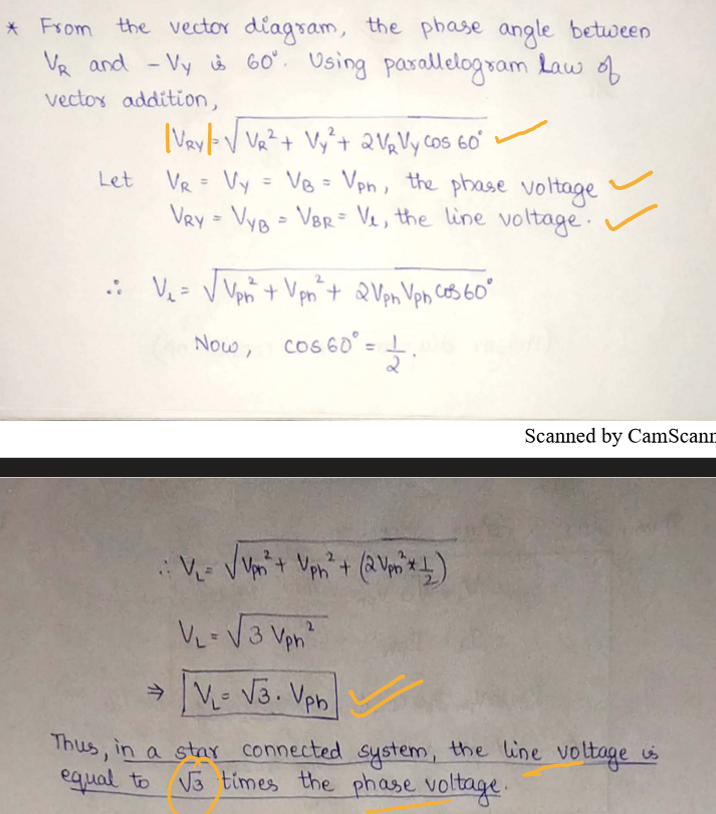 * From the vector diagram, the phase angle between
V_R and - V_Y is 60°. Using parallelogram Law of
vector addition,
|V_RY| = √(V_R² + V_Y² + 2V_R V_Y cos 60°)
Let V_R = V_Y = V_B = V_Ph, the phase voltage
V_RY = V_YB = V_BR = V_L, the line voltage.
∴ V_L = √(V_Ph² + V_Ph² + 2V_Ph V_Ph Cos 60°)
Now, cos 60° = 1/2.
Scanned by CamScann
∴ V_L = √(V_Ph² + V_Ph² + (2V_Ph² * 1/2))
V_L = √(3 V_Ph²)
⇒ V_L = √3 . V_Ph
Thus, in a star connected system, the line voltage is
equal to √3 times the phase voltage.